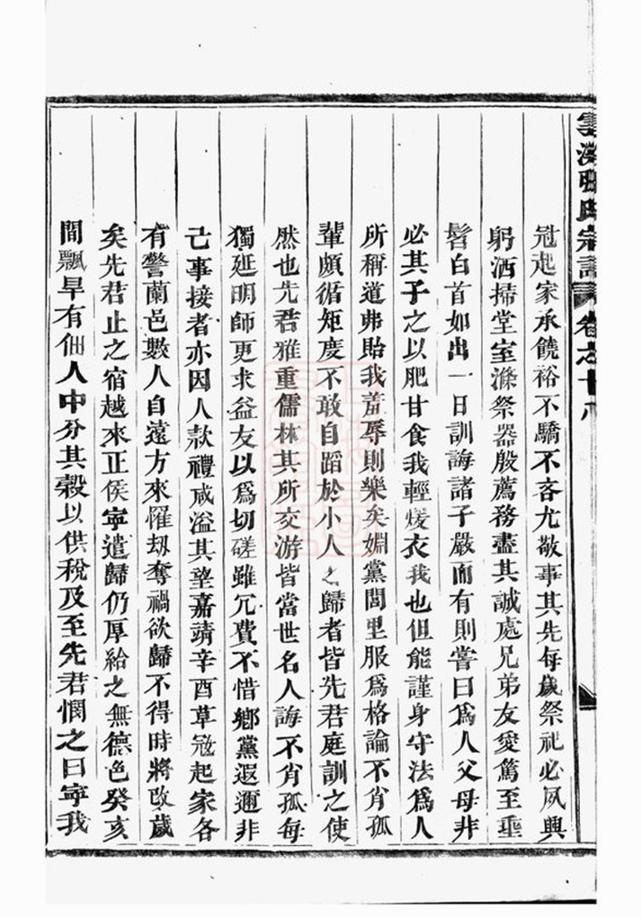 張氏宗譜 卷之十八
冠起家承饒裕不驕不吝尤敬事其先每歲祭祀必夙興
躬洒掃堂室滌祭器殷薦務盡其誠處兄弟友愛篤至垂
髫白首如出一日訓誨諸子嚴而有則嘗曰爲人父母非
必其子之以肥甘食我輕煖衣我也但能謹身守法爲人
所稱道弗貽我羞辱則樂矣婣黨閭里服爲格論不肖孤
輩頗循矩度不敢自蹈於小人之歸者皆先君庭訓之使
然也先君雅重儒林其所交游皆當世名人誨不肖孤每
獨延明師更求益友以爲切磋雖冗費不惜鄉黨遐邇非
己事接者亦因人款禮咸溢其望嘉靖辛酉草冦起家各
有警蘭邑數人自遠方來懼劫奪禍欲歸不得時將改歲
矣先君止之宿越來正侯寧遣歸仍厚給之無德色癸亥
間飄旱有佃人中分其穀以供稅及至先君憫之曰寧我